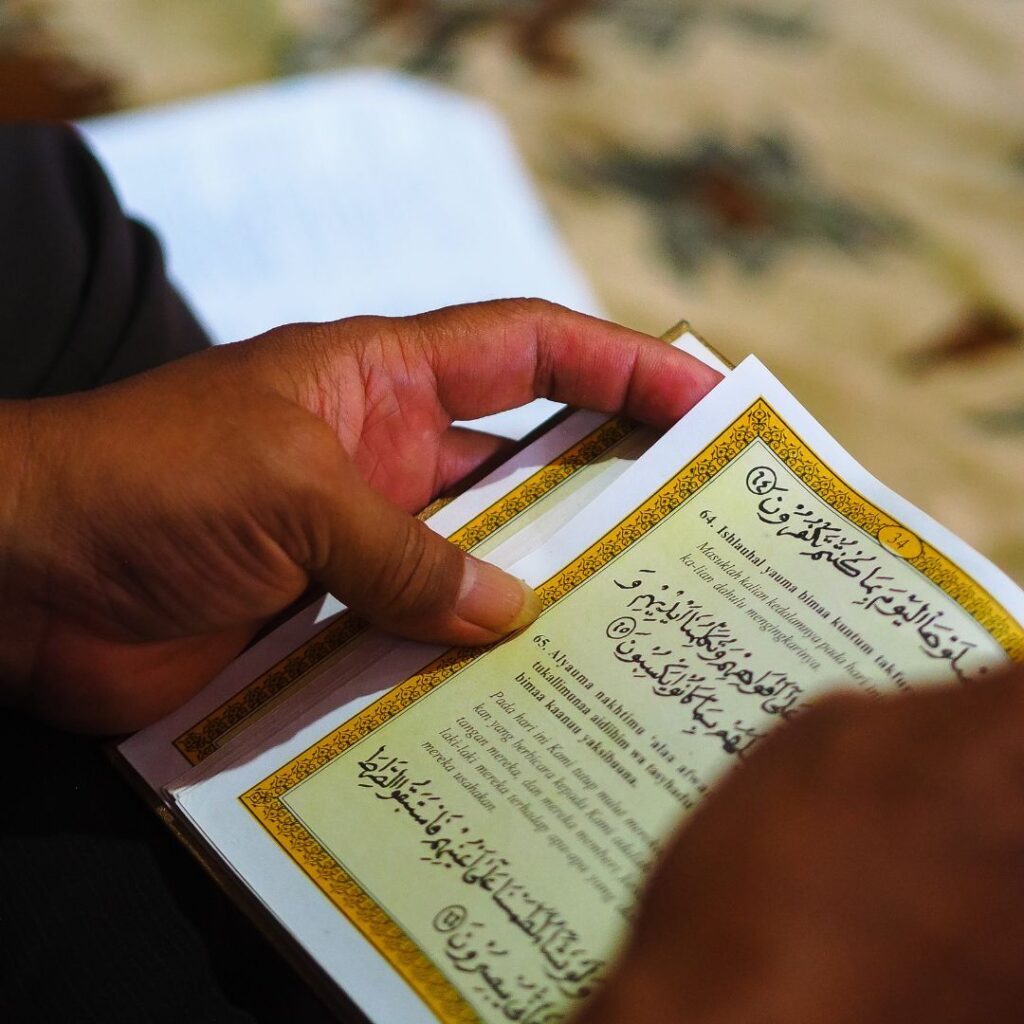 34
صْلَوْهَا الْيَوْمَ بِمَا كُنْتُمْ تَكْفُرُوْنَ ٦٤
64. Ishlauhal yauma bimaa kuntum takfur
Masuklah kalian kedalamnya pada hari ini
ka-lian dahulu mengingkarinya.
عَلٰٓى اَفْوَاهِهِمْ وَتُكَلِّمُنَآ اَيْدِيْهِمْ وَ
بِمَا كَانُوْا يَكْسِبُوْنَ ٦٥
65. Alyauma nakhtimu 'alaa afwa
tukallimunaa aidiihim wa tasyhadu
bimaa kaanuu yaksibuuna.
Pada hari ini Kami tutup mulut mere
kan yang berbicara kepada Kami adala
tangan mereka, dan mereka memberi
laki-laki mereka terhadap apa-apa yang
mereka usahakan.
وَلَوْ نَشَآءُ لَطَمَسْنَا عَلٰٓى اَعْيُنِهِمْ فَاسْتَبَقُوا الصِّرَاطَ
يُبْصِرُوْنَ ٦٦